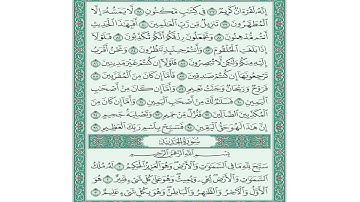 إِنَّهُۥ لَقُرْءَانٌ كَرِيمٌ فِى كِتَٰبٍ مَّكْنُونٍ لَّا يَمَسُّهُۥٓ إِلَّا
ٱلْمُطَهَّرُونَ تَنزِيلٌ مِّن رَّبِّ ٱلْعَٰلَمِينَ أَفَبِهَٰذَا ٱلْحَدِيثِ
أَنتُم مُّدْهِنُونَ وَتَجْعَلُونَ رِزْقَكُمْ أَنَّكُمْ تُكَذِّبُونَ فَلَوْلَآ
إِذَا بَلَغَتِ ٱلْحُلْقُومَ وَأَنتُمْ حِينَئِذٍ تَنظُرُونَ وَنَحْنُ أَقْرَبُ
إِلَيْهِ مِنكُمْ وَلَٰكِن لَّا تُبْصِرُونَ فَلَوْلَآ إِن كُنتُمْ غَيْرَ مَدِينِينَ
تَرْجِعُونَهَآ إِن كُنتُمْ صَٰدِقِينَ فَأَمَّآ إِن كَانَ مِنَ ٱلْمُقَرَّبِينَ
فَرَوْحٌ وَرَيْحَانٌ وَجَنَّتُ نَعِيمٍ وَأَمَّآ إِن كَانَ مِنْ أَصْحَٰبِ
ٱلْيَمِينِ فَسَلَٰمٌ لَّكَ مِنْ أَصْحَٰبِ ٱلْيَمِينِ وَأَمَّآ إِن كَانَ مِنَ
ٱلْمُكَذِّبِينَ ٱلضَّآلِّينَ فَنُزُلٌ مِّنْ حَمِيمٍ وَتَصْلِيَةُ جَحِيمٍ
إِنَّ هَٰذَا لَهُوَ حَقُّ ٱلْيَقِينِ فَسَبِّحْ بِٱسْمِ رَبِّكَ ٱلْعَظِيمِ
سُورَةُ الحَدِيدِ
بِسْمِ ٱللَّهِ ٱلرَّحْمَٰنِ ٱلرَّحِيمِ
سَبَّحَ لِلَّهِ مَا فِى ٱلسَّمَٰوَٰتِ وَٱلْأَرْضِ وَهُوَ ٱلْعَزِيزُ ٱلْحَكِيمُ لَهُۥ مُلْكُ
ٱلسَّمَٰوَٰتِ وَٱلْأَرْضِ يُحْىِۦ وَيُمِيتُ وَهُوَ عَلَىٰ كُلِّ شَىْءٍ قَدِيرٌ هُوَ
ٱلْأَوَّلُ وَٱلْءَاخِرُ وَٱلظَّٰهِرُ وَٱلْبَاطِنُ وَهُوَ بِكُلِّ شَىْءٍ عَلِيمٌ